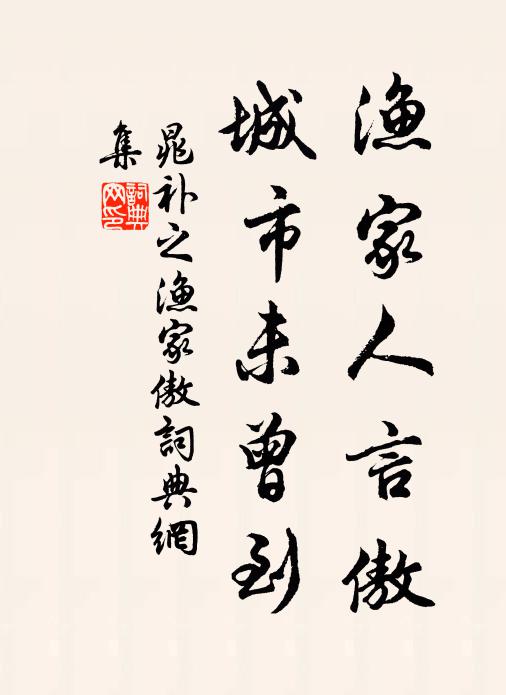 渔家人言傲
城市未曾到
晁补之渔家傲詞典網
集
詞典
网印